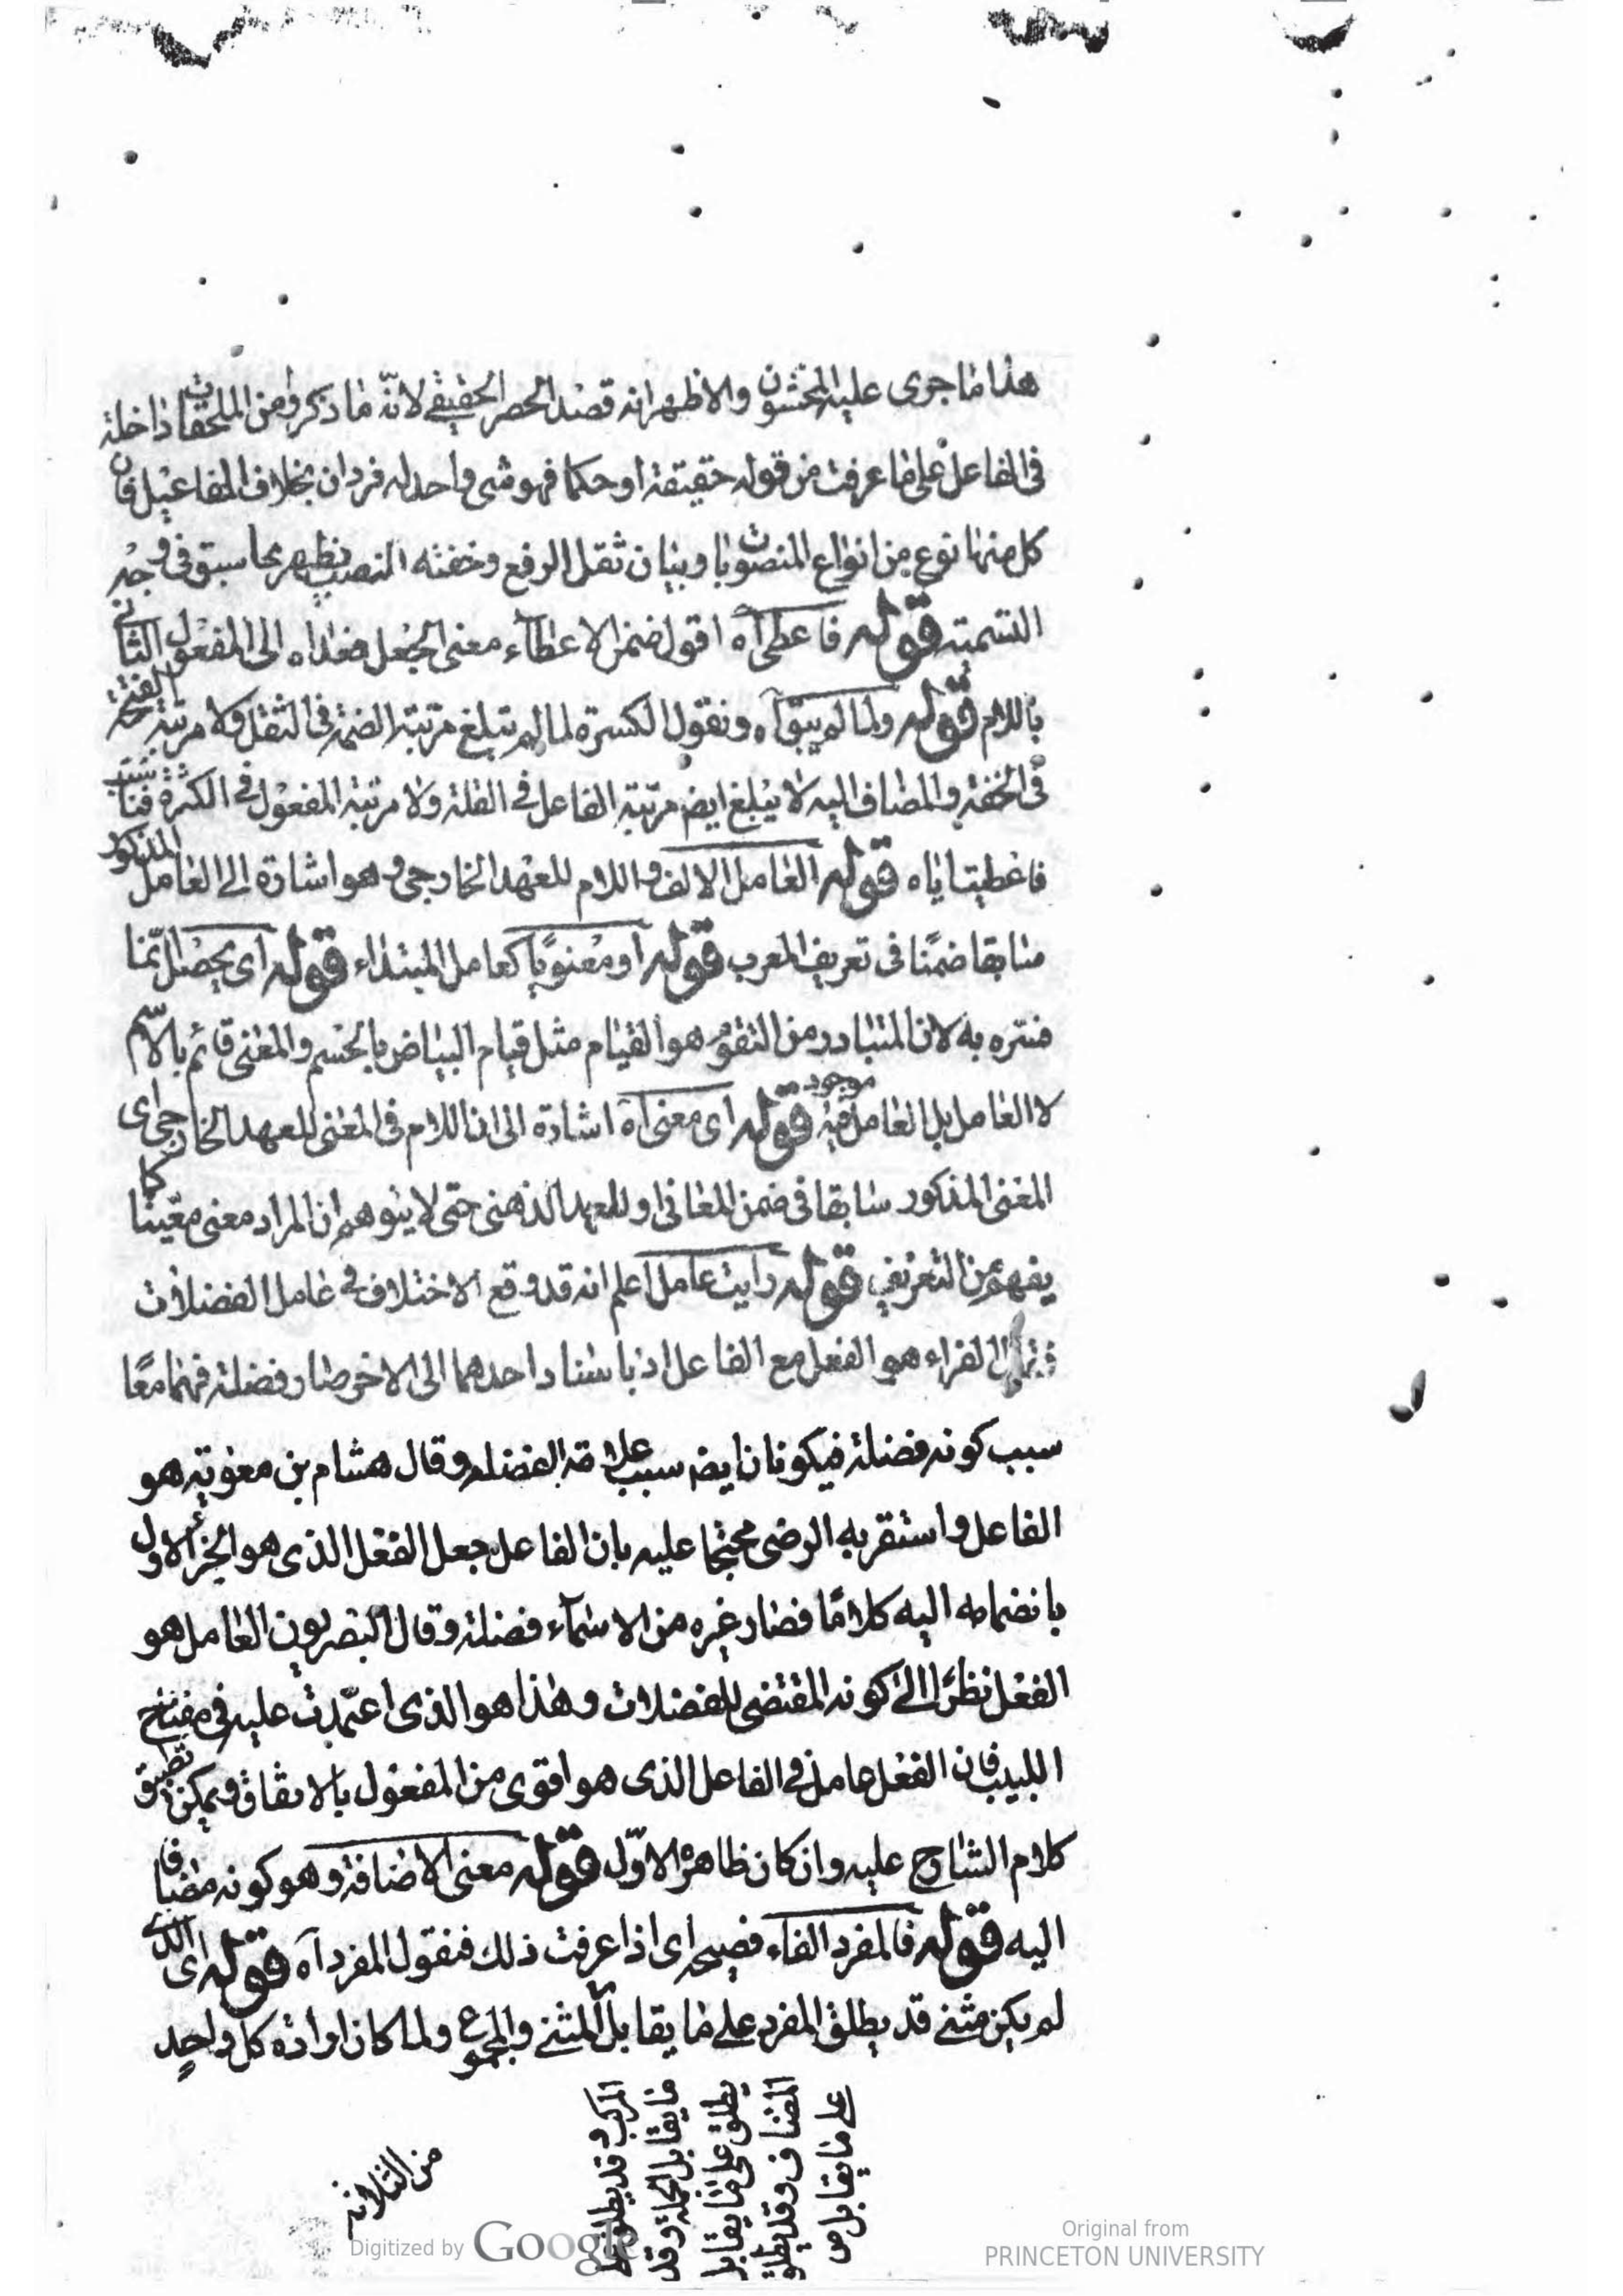 هذا ما جرى عليه المحشون والاظهر انه قصد الحصر الحقيقي لانّه ما ذكروه من الملحقات داخلة
في الفاعل على ما عرفت من قوله حقيقة او حكما فهو شئ واحد له فردان بخلاف المفاعيل فان
كل منها نوع من انواع المنصوبات وبيان ثقل الرفع وخفته النصب يظهر بما سبق في وجه
التسمية قوله فاعطى آه اقول ضمن الاعطآء معنى الجعل فعداه الى المفعول الثاني
باللام قوله ولما لم يبق آه ونقول الكسرة لما لم تبلغ مرتبة الضمة في الثقل ولا مرتبة الفتحة
في الخفة والمضاف اليه لا يبلغ ايض مرتبة الفاعل في القلة ولا مرتبة المفعول في الكثرة فناسبت
فاعطيت اياه قوله العامل الالف واللام للعهد الخارجي وهو اشارة الى العامل المذكور
سابقا ضمنا في تعريف المعرب قوله او معنويا كعامل المبتداء قوله اى يحصل انما
فسره به لان المتبادر من التقوّم هو القيام مثل قيام البياض بالجسم والمعنى قائم بالاسم
لا العامل بل العامل موجود فيه قوله اى معنى آه اشارة الى ان اللام في المعنى للعهد الخارجي اى
المعنى المذكور سابقا في ضمن المعاني او للعهد الذهني حتى لا يتوهم ان المراد معنى معيّنا كما
يفهم من التعريف قوله رايت عامل اعلم انه قد وقع الاختلاف في عامل الفضلات
فقال الفراء هو الفعل مع الفاعل اذ باسناد احدهما الى الاخر صار فضلة فهما معًا
سبب كونه فضلة فيكونان ايض سبب علامة الفضلة وقال هشام بن معوية هو
الفاعل واستقر به الرضى محتجا عليه بان الفاعل جعل الفعل الذى هو الجزء الاول
بانضمامه اليه كلامًا فصار غيره من الاسمآء فضلة وقال البصريون العامل هو
الفعل نظرًا الى كونه المقتضى للفضلات وهذا هو الذى اعتمدت عليه في مفتاح
اللبيب فان الفعل عامل في الفاعل الذى هو اقوى من المفعول بالاتفاق ويمكن تطبيق
كلام الشارح عليه وان كان ظاهره الاوّل قوله معنى الاضافة وهو كونه مضافا
اليه قوله فالمفرد الفاء فصيحه اى اذا عرفت ذلك فنقول المفرد آه قوله اى الذى
لم يكن مثنى قد يطلق المفرد على ما يقابل المثنى والمجموع ولما كان ارادة كل واحد
على ما يقابل
المضاف وقد يطلق
يطلق على ما يقابل
ما يقابل الجملة وقد
المركب وقد يطلق
من الثلاثة
Digitized by Google
Original from
PRINCETON UNIVERSITY